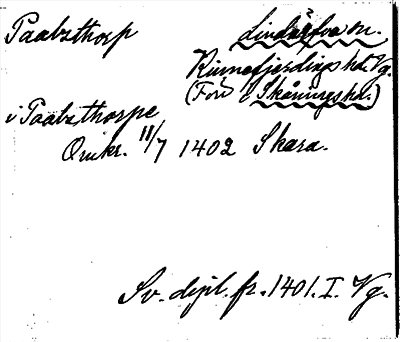 Paabzthorp
Lindärfva sn.
Kinnefjerdings hd. Vg.
(Förr i Skånings hd.)
i Paabzthorpe
Omkr. 11/7 1402 Skara.
Sv. dipl. fr. 1401. I. Vg.